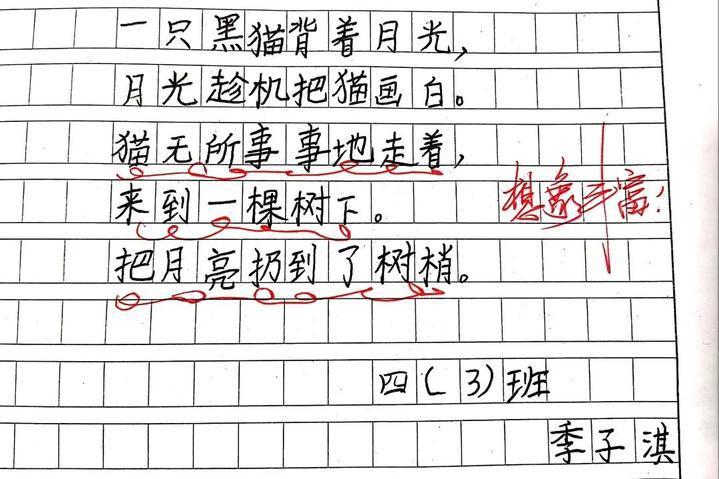 一只黑猫背着月光,
月光趁机把猫画白。
猫无所事事地走着,
来到一棵树下。
想象丰富!
把月亮扔到了树梢。
四(3)班
季子淇